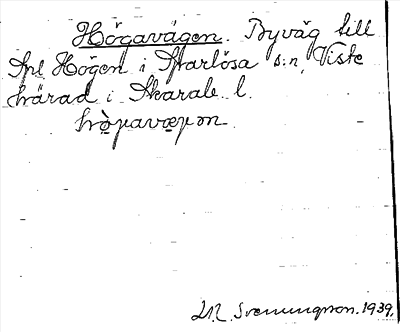 Högavägen. Byväg till
Spl. Högen i Sparlösa s:n, Viste
härad i Skarab. l.
M. Svenungson. 1939.